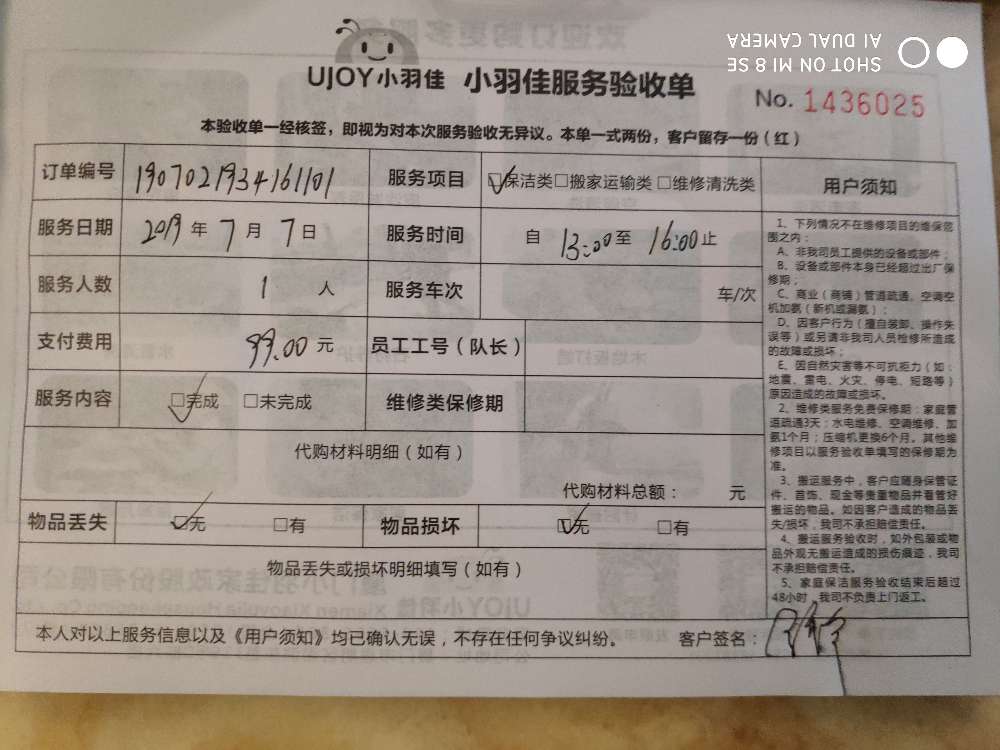 UJOY小羽佳 小羽佳服务验收单
No. 1436025
本验收单一经核签，即视为对本次服务验收无异议。本单一式两份，客户留存一份（红）
订单编号 1907021934161101 服务项目 保洁类 搬家运输类 维修清洗类
服务日期 2019年7月7日 服务时间 自 13:00至 16:00止
服务人数 1 人 服务车次 车/次
支付费用 99.00元 员工工号（队长）
服务内容 完成 未完成 维修类保修期
代购材料明细（如有）
代购材料总额： 元
物品丢失 无 有 物品损坏 无 有
物品丢失或损坏明细填写（如有）
本人对以上服务信息以及《用户须知》均已确认无误，不存在任何争议纠纷。 客户签名：
用户须知
1、下列情况不在维修项目的维保范
围之内：
A、非我司员工提供的设备或部件；
B、设备或部件本身已经超过出厂保
修期；
C、商业（商铺）管道疏通、空调空
机加氨（新机或漏氨）；
D、因客户行为（擅自装卸、操作失
误等）或另请非我司人员检修所造成
的故障或损坏；
E、因自然灾害等不可抗拒力（如：
地震、雷电、火灾、停电、短路等）
原因造成的故障或损坏。
2、维修类服务免费保修期：家庭管
道疏通3天；水电维修、空调维修、加
氨1个月；压缩机更换6个月。其他维
修项目以服务验收单填写的保修期为
准。
3、搬运服务中，客户应随身保管证
件、首饰、现金等贵重物品并看管好
搬运的物品。如因客户造成的物品丢
失/损坏，我司不承担赔偿责任。
4、搬运服务验收时，如外包装或物
品外观无搬运造成的损伤痕迹，我司
不承担赔偿责任。
5、家庭保洁服务验收结束后超过
48小时，我司不负责上门返工。
SHOT ON MI 8 SE
AI DUAL CAMERA